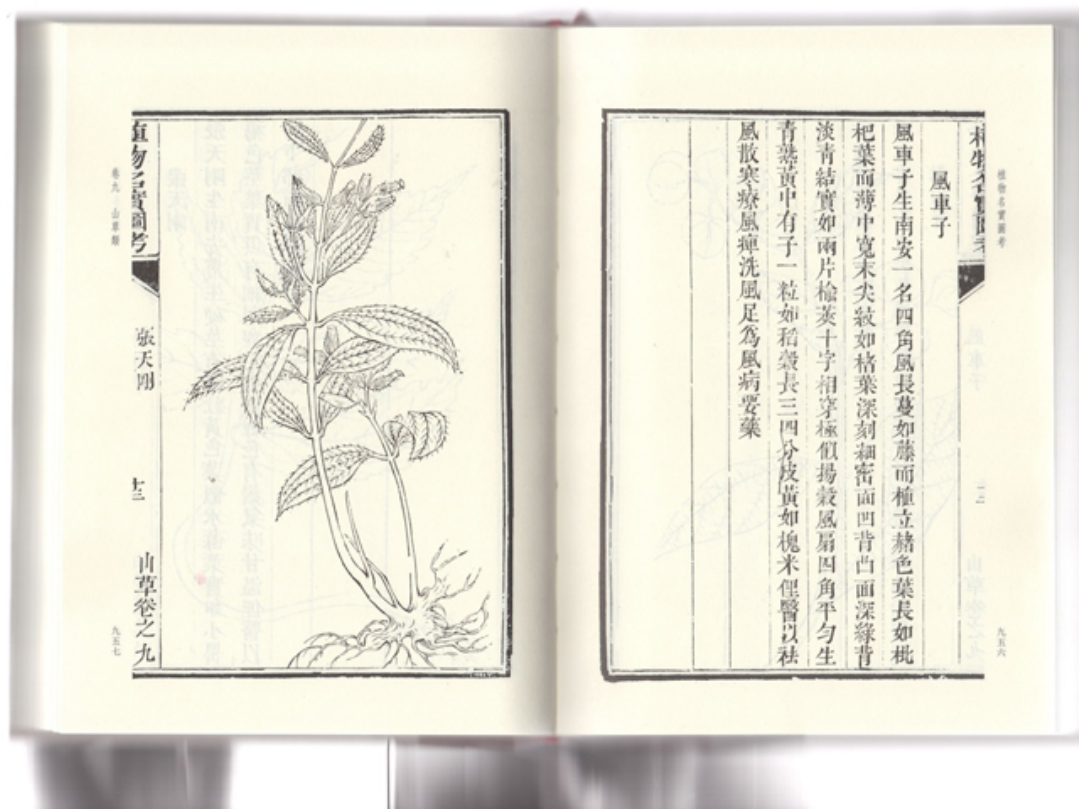 植物名實圖考
植物名實圖考
九五六
風車子
風車子生南安一名四角風長蔓如藤而植立赭色葉長如枇
杷葉而薄中寬末尖紋如楮葉深刻細密面凹背凸面深綠背
淡青結實如兩片榆莢十字相穿極似揚穀風扇四角平勻生
青熟黃中有子一粒如稻穀長三四分皮黃如槐米俚醫以祛
風散寒療風痺洗風足為風病要藥
植物名實圖考
張天剛
十三
山草卷之九
卷九 山草類
九五七